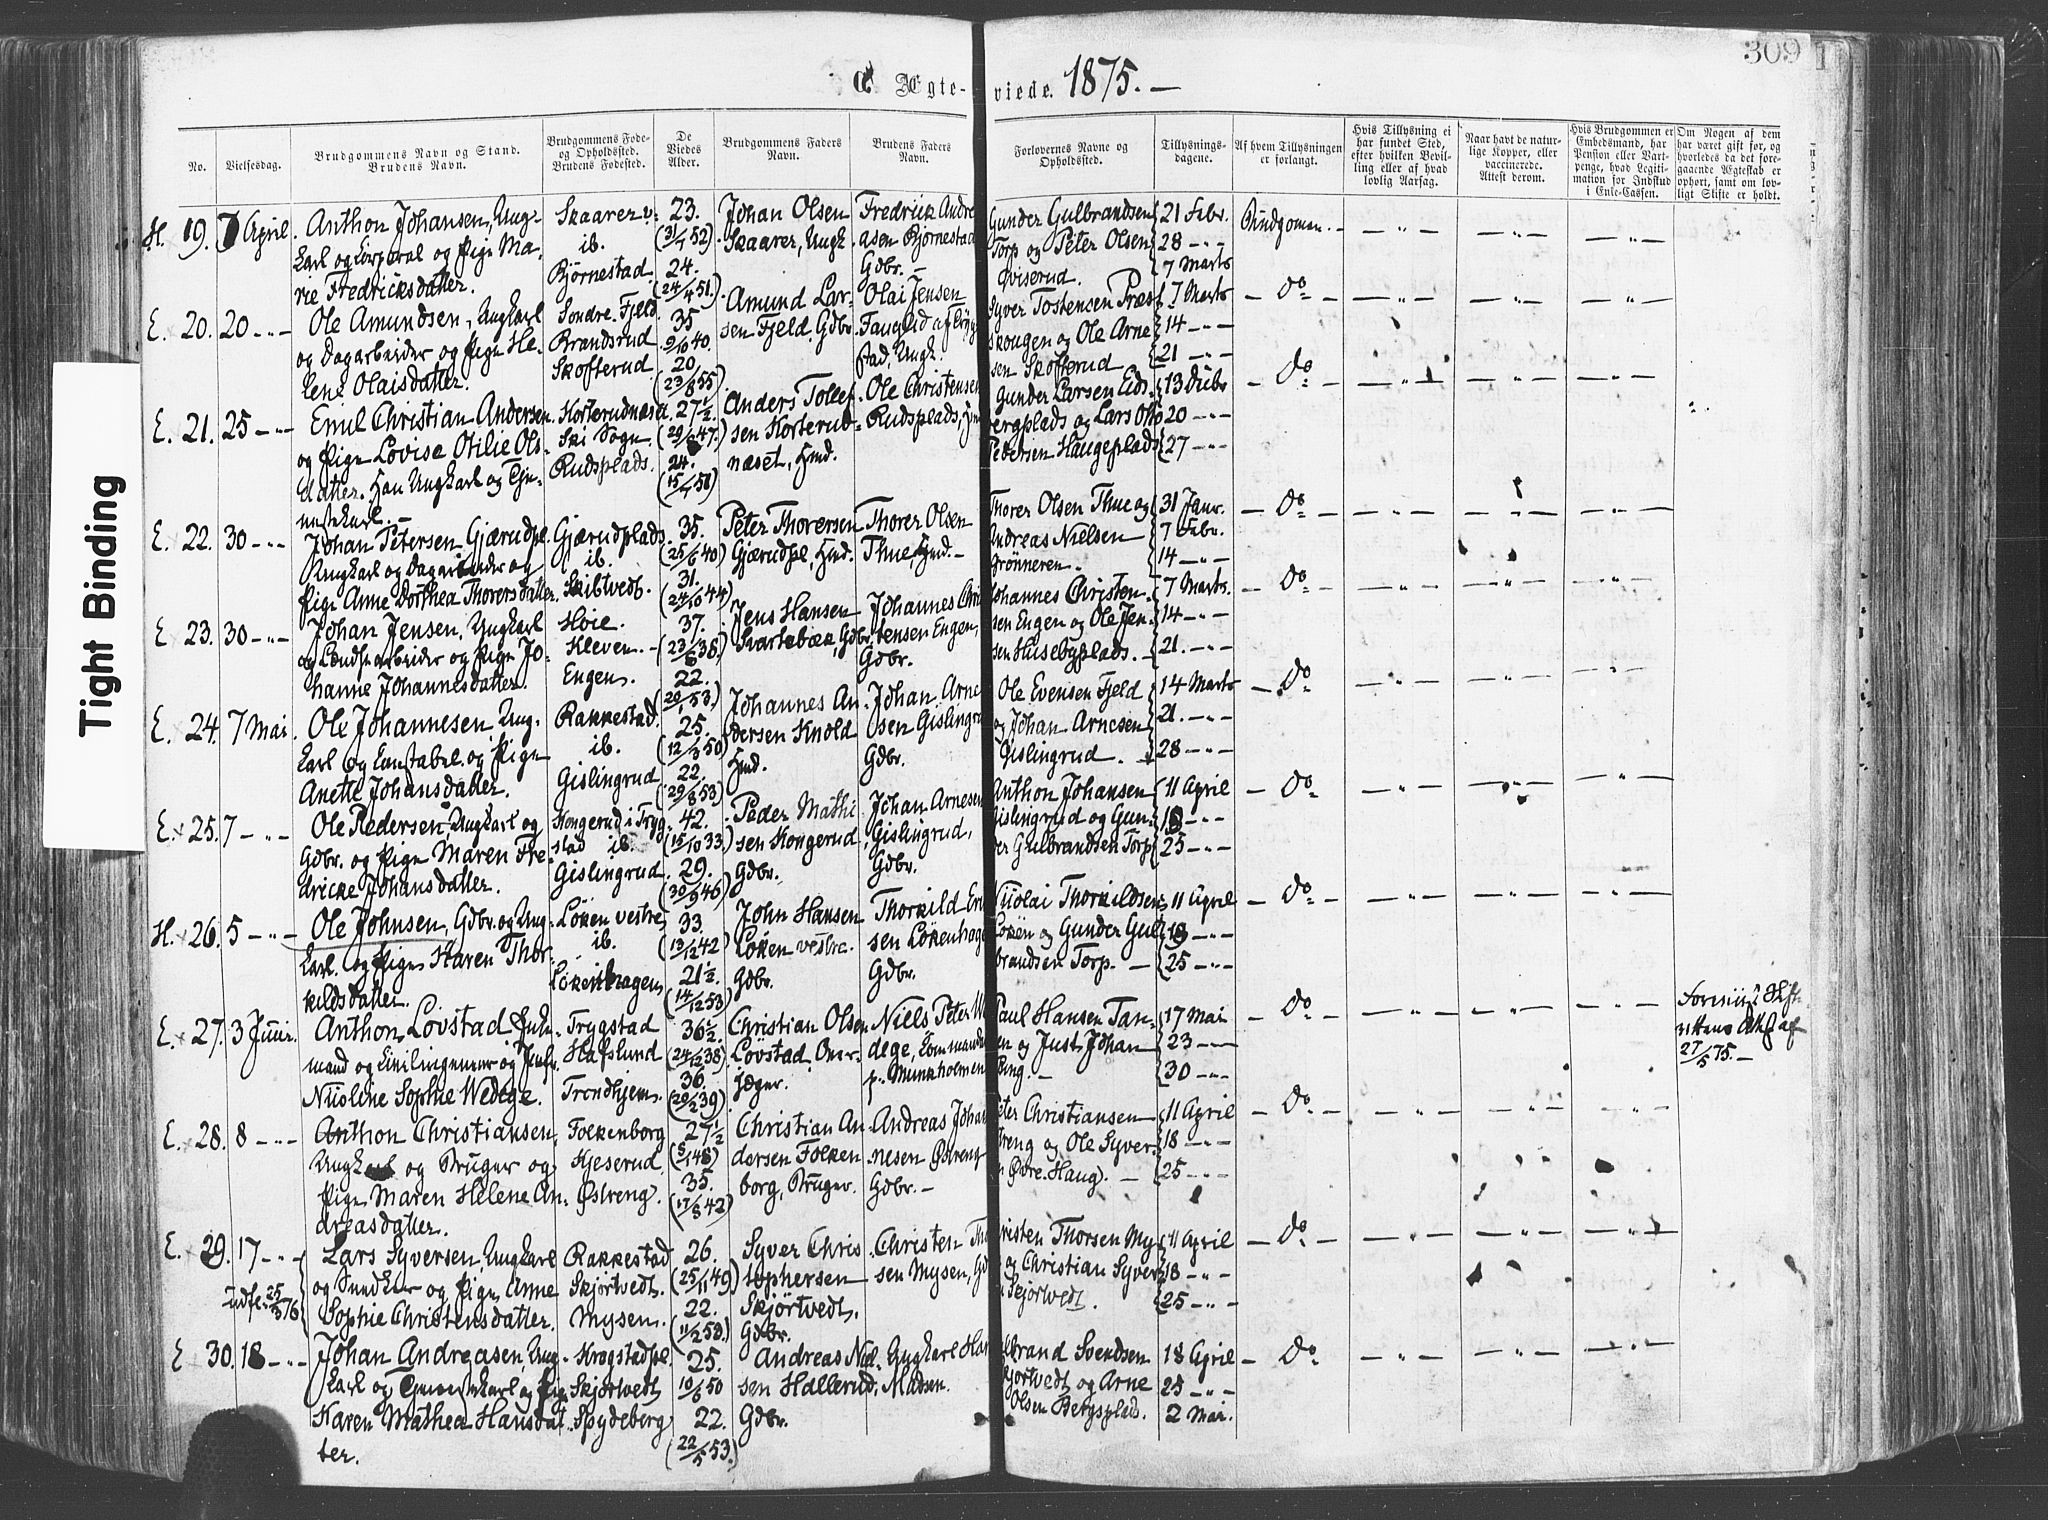 309
C Ægteviede. 1875. —
No.
Vielsesdag.
Brudgommens Navn og Stand.
Brudens Navn.
Brudgommens Føde-
og Opholdssted.
Brudens Fødested.
De
Viedes
Alder.
Brudgommens Faders
Navn.
Brudens Faders
Navn.
Forlovernes Navne og
Opholdssted.
Tillysnings-
dagene.
Af hvem Tillysningen
er forlangt.
Hvis Tillysning ei
har fundet Sted,
efter hvilken Bevil-
ling eller af hvad
lovlig Aarsag.
Naar havt de natur-
lige Kopper, eller
vaccinerede.
Attest derom.
Hvis Brudgommen er
Embedsmand, har
Pension eller Vart-
penge, hvad Legiti-
mation for Indskud
i Enke-Cassen.
Om Nogen af dem
har været gift før, og
hvorledes da det fore-
gaaende Ægteskab er
ophørt, samt om lov-
ligt Skifte er holdt.
Tight Binding
H. 19. 7 April.
Anthon Johansen, Ung-
karl og Corporal og Pige Ma-
rie Fredricksdatter.
Skaarer v.
ib.
Bjørnestad
23.
(31/7 52)
24.
(24/4 51.)
Johan Olsen
Skaarer, Ungk.
Fredrick Andre
asen Bjørnestad
Gdbr. —
Gunder Gulbrandsen
Torp og Peter Olsen
Qviserud.
21 Febr.
28 — " —
7 Marts
Brudgommen. —
E. 20. 20 — " —
Ole Amundsen, Ungkarl
og Dagarbeider og Pige He-
lene Olaisdatter.
Søndre Fjeld.
Brandsrud
Skofterud
35
9/10 40.
20
(23/8 55)
Amund Lar-
sen Fjeld, Gdbr.
Olai Jensen
stad, Ungk.
Syver Tostensen Præst
skougen og Ole Arne
sen Skofterud
7 Marts
14 — " —
21 — " —
— Do —
E. 21. 25 — " —
Emil Christian Andersen
og Pige Lovise Otilie Ols-
datter. Han Ungkarl og Tje-
nestekarl. —
Korterudnæset
Ski Sogn
Rudsplads.
27 1/2.
24.
Anders Tollef-
sen Korterud-
næset, Hmd.
Ole Christensen
Rudsplads, Hmd
Gunder Larsen Eids-
bergplads og Lars Otto
Petersen Haugeplads
13 Dcbr
20 — " —
27 — " —
— Do —
E. 22. 30 — " —
Johan Petersen Gjærudpl.
Ungkarl og Dagarbeider og
Pige Anne Dorthea Thorersdatter.
Gjærudplads.
ib.
Skibtvedt.
35.
(25/6 40)
31.
(24/10 44)
Peter Thorersen
Gjærudpl, Hmd.
Thorer Olsen
Thue, Hmd. —
Thorer Olsen Thue og
Andreas Nielsen
Grønneren.
31 Janr.
7 Febr.
14 — " —
— Do —
E. 23. 30 — " —
Johan Jensen, Ungkarl
og Landarbeider og Pige Jo-
hanne Johannesdatter.
Høie.
Kleven. —
Engen.
37.
(23/8 38)
22.
(20/1 53)
Jens Hansen
Svartebæk, Gdbr.
Johannes Chris
tensen Engen,
Gdbr.
Johannes Christen-
sen Engen og Ole Jen-
sen Husebyplads. —
7 Marts.
14 — " —
21. — " —
— Do —
E. 24. 7 Mai.
Ole Johannesen, Ung-
karl og Constabel og Pige
Anette Johansdatter.
Rakkestad.
ib.
Gislingrud
25.
(12/3 50)
22.
(29/8 53)
Johannes An-
dersen Knold
Hmd.
Johan Arne
sen Gislingrud
Gdbr.
Ole Evensen Fjeld
og Johan Arnesen
Gislingrud.
14 Marts
21. — " —
28 — " —
— Do —
E. 25. 7 — " —
Ole Pedersen Ungkarl og
Gdbr. og Pige Maren Fre-
dricke Johansdatter.
Kongerud i Tryg-
stad ib.
Gislingrud.
42.
(15/10 33)
29.
(30/9 46)
Peder Mathi
sen Kongerud
Gdbr.
Johan Arnesen
Gislingrud,
Gdbr.
Anthon Johansen
Gislingrud og Gun-
der Gulbrandsen Torp
11 April
18 — " —
25 — " —
— Do —
H. 26. 5 — " —
Ole Johnsen, Gdbr. og Ung-
karl. og Pige Karen Thor-
kildsdatter.
Løken vestre
ib.
Løkenhagen
33.
(13/12 42)
21 1/2.
(14/12 53)
John Hansen
Løken vestre.
Gdbr.
Thorkild Eri
sen Løkenhagen
Gdbr.
Nicolai Thorkildsen
Løken og Gunder Gul-
brandsen Torp. —
11 April
18 — " —
25 — " —
— Do —
E. 27. 3 Juni.
Anthon Løvstad Enke-
mand og Civilingeniør og Enke
Nicoline Sophie Wedege.
Trygstad
Hafslund
Trondhjem.
36 1/2.
(24/12 38)
36.
(20/2 39)
Christian Olsen
Løvstad
jæger.
Niels Peter We
dege, Commandt
p. Munkholmen
Paul Hansen Tan-
gen og Just Johan
Bing. —
17 Mai
23 — " —
30 — " —
— Do —
27/5 75. —
E. 28. 8 — " —
Anthon Christiansen,
Ungkarl og Bruger og
Pige Maren Helene An-
dreasdatter.
Folkenborg
Hjeserud
Østreng.
27 1/2
(5/1 48)
35.
(17/8 42)
Christian An-
dersen Folken
borg, Bruger.
Andreas Johan
nesen Østreng
Gdbr. —
Peter Christiansen
Østreng og Ole Syver-
sen Øvre Haug. —
11 April
18 — " —
25 — " —
— Do —
E. 29. 17 — " —
Udfl. 25/3 76
Lars Syversen, Ungkarl
og Snedker og Pige Anne
Sophie Christensdatter.
Rakkestad
Skjørtvedt.
Mysen.
26.
(25/11 49)
22.
(11/2 53.)
Syver Chris
tophersen
Skjørtvedt.
Gdbr.
Christen Tho
sen Mysen, Gd
Christen Thorsen My-
sen og Christian Syver
sen Skjørtvedt.
11 April
18 — " —
25 — " —
— Do —
E 30. 18 — " —
Johan Andreasen, Ung-
karl og Tjenestekarl og Pige
Karen Mathea Hansdat-
ter.
Krogstadpl.
Skjørtvedt
Spydeberg
25.
10/6 50
22.
(22/5 53.)
Andreas Niel-
sen Hallerud,
Gdbr.
Ungkarl Hans
Madsen.
Gulbrand Svendsen
Skjørtvedt og Arne
Olsen Bergsplads.
18 April
25 — " —
2 Mai.
— Do —